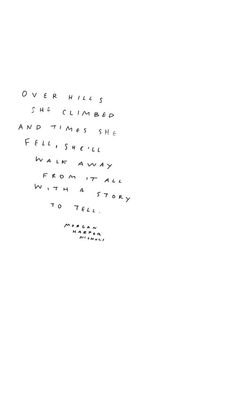 OVER HILLS
SHE CLIMBED
AND TIMES SHE
FELL, SHE'LL
WALK AWAY
FROM IT ALL
WITH A STORY
TO TELL.
MORGAN
HARPER
NICHOLS